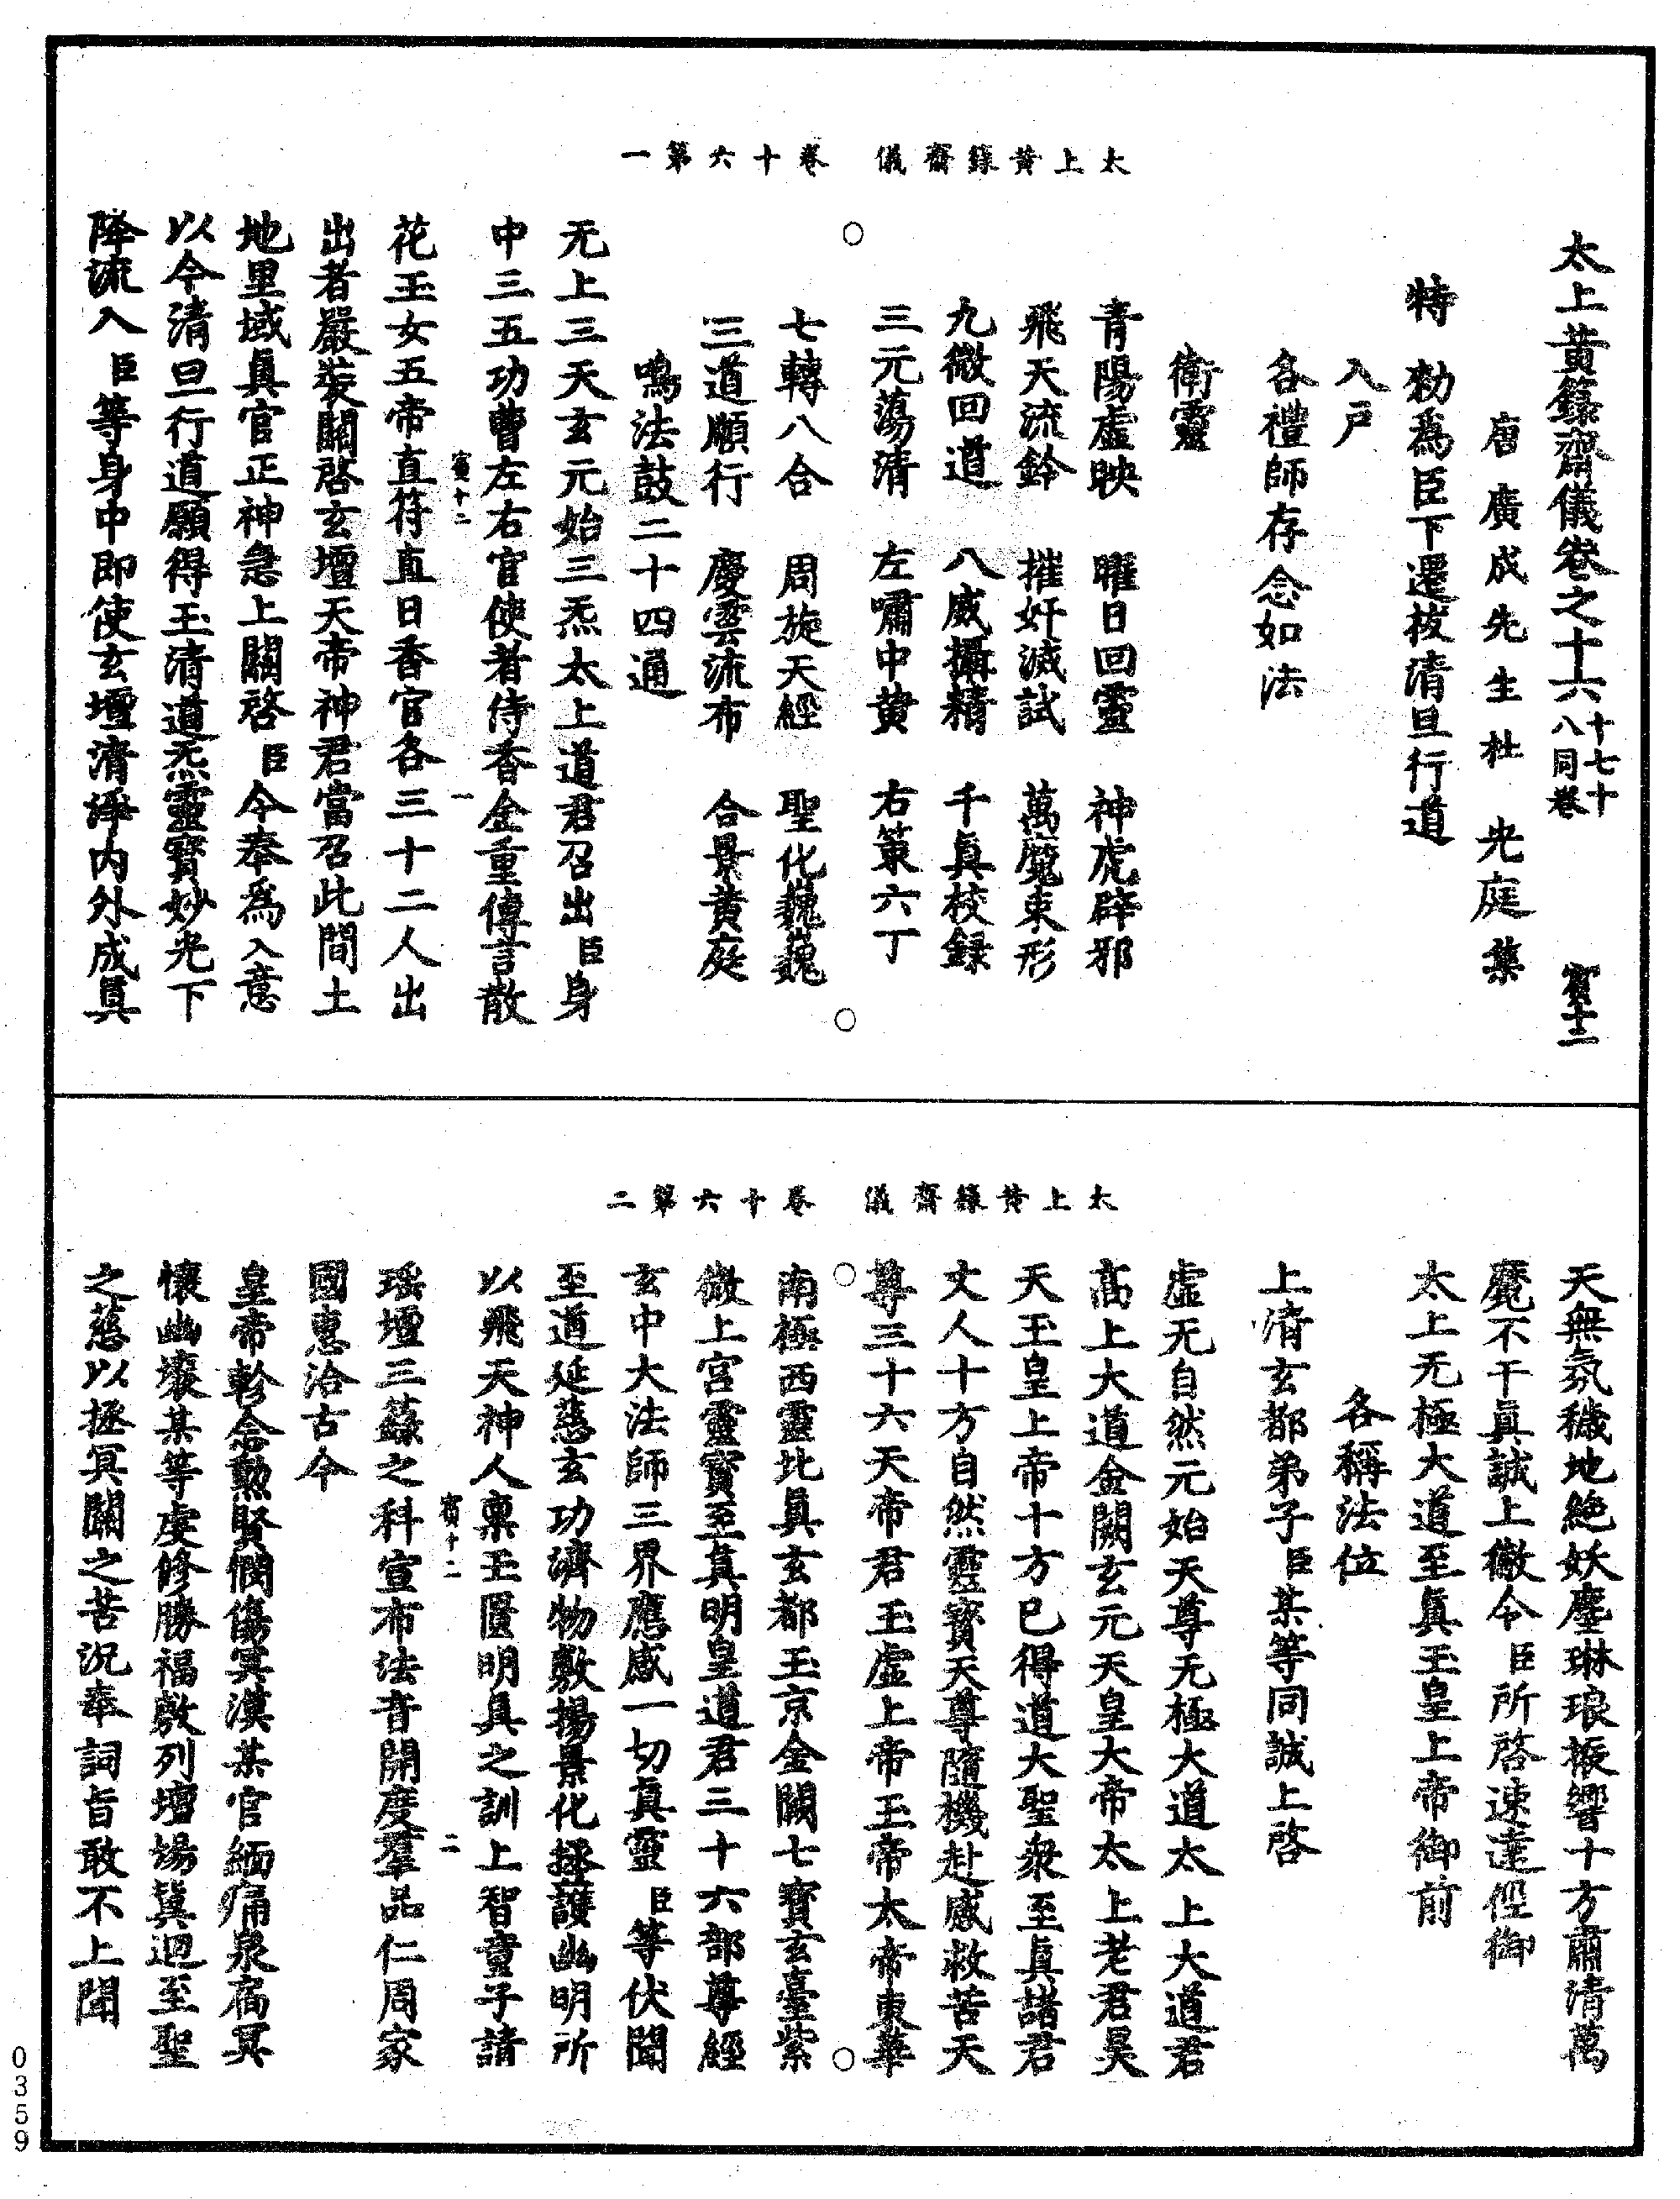 太上黃籙齋儀　卷十六第一
太上黃籙齋儀卷之十六十七十八同卷　賓十二
唐廣成先生杜　光庭　集
特　勑爲臣下遷拔清旦行道
入戶
各禮師存念如法
衛靈
青陽虛映　曜日回靈　神虎辟邪
飛天流鈴　摧奸滅試　萬魔束形
九微回道　八威攝精　千眞校錄
三元蕩清　左嘯中黃　右策六丁
七轉八合　周旋天經　聖化巍巍
三道順行　慶雲流布　合景黃庭
鳴法鼓二十四通
无上三天玄元始三炁太上道君召出臣身
中三五功曹左右官使者侍香金童傳言散
賓十二　一
花玉女五帝直符直日香官各三十二人出
出者嚴裝關啓玄壇天帝神君當召此間土
地里域眞官正神急上關啓臣今奉爲入意
以今清旦行道願得玉清道炁靈寶妙光下
降流入臣等身中即使玄壇清淨內外成眞
太上黃籙齋儀　卷十六第二
天無氛穢地絕妖塵琳琅振響十方肅清萬
魔不干眞誠上徹今臣所啓速達徑御
太上无極大道至眞玉皇上帝御前
各稱法位
上清玄都弟子臣某等同誠上啓
虛无自然元始天尊无極大道太上大道君
高上大道金闕玄元天皇大帝太上老君昊
天玉皇上帝十方已得道大聖衆至眞諸君
丈人十方自然靈寶天尊隨機赴感救苦天
尊三十六天帝君玉虛上帝玉帝太帝東華
南極西靈北眞玄都玉京金闕七寶玄臺紫
微上宮靈寶至眞明皇道君三十六部尊經
玄中大法師三界應感一切眞靈臣等伏聞
至道延慈玄功濟物敷揚景化拯護幽明所
以飛天神人稟玉匱明眞之訓上智童子請
賓十二　二
瑤壇三籙之科宣布法音開度羣品仁周家
國惠洽古今
皇帝軫念勳賢憫傷冥漠某官緬痛泉扃冥
懷幽壤某等虔修勝福敷列壇場冀迴至聖
之慈以拯冥關之苦況奉詞旨敢不上聞
0359